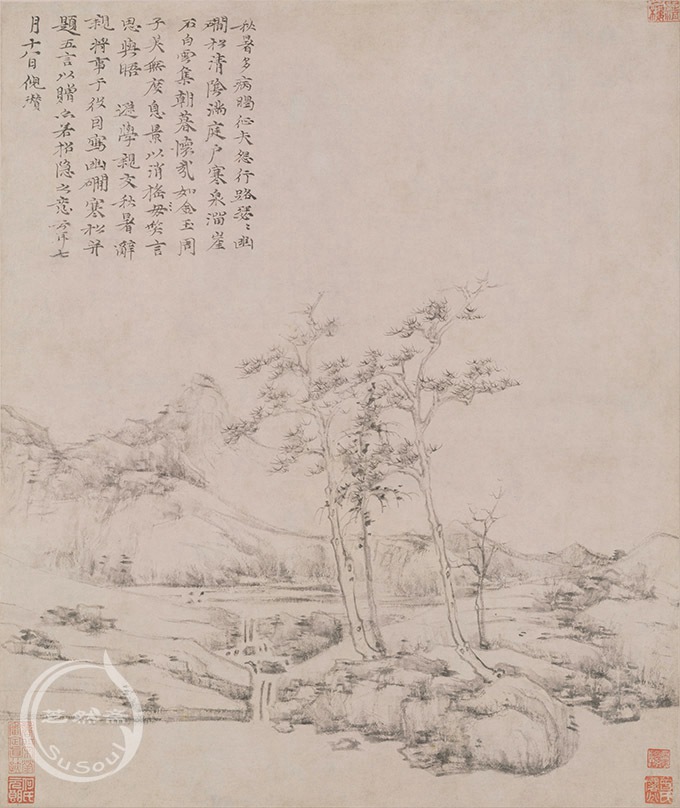 秋暑多病暍征夫怨行路瑟〻幽
澗松清陰滿庭戶寒泉溜崖
石白雲集朝暮懷哉如金玉周
子美無度息景以消搖毋笑言
思與晤 遜學親友秋暑辭
親將事于役因寫幽澗寒松并
題五言以贈亦若招隱之意云耳七
月十八日倪瓚
艺然斋
SuSoul